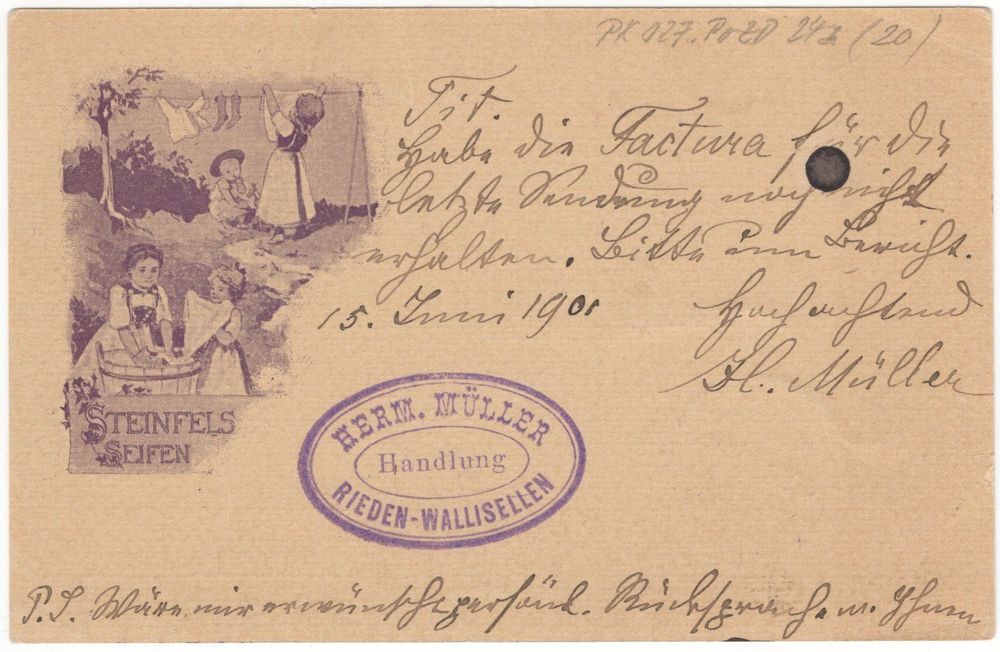 PK 127. PoZD 241 (20)
Tit.
Habe die Factura für die
letzte Sendung noch nicht
erhalten. Bitte um Bericht.
15. Juni 1901
Hochachtend
H. Müller
STEINFELS
SEIFEN
HERM. MÜLLER
Handlung
RIEDEN-WALLISELLEN
P.S. Wäre mir erwünscht persönl. Rücksprache m. Ihnen